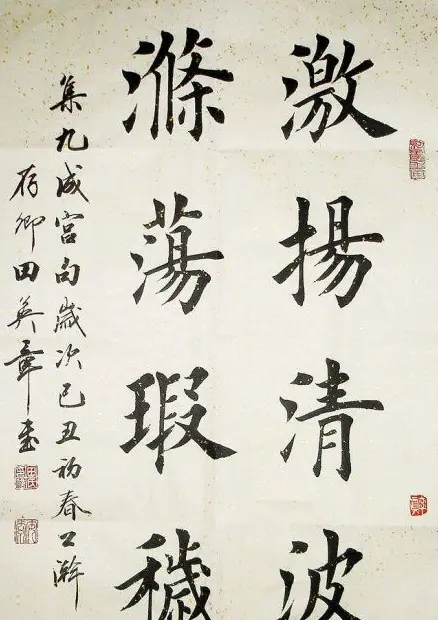 激揚清波
滌蕩瑕穢
集九成宫句歲次己丑初春之澣
存卿田英章書